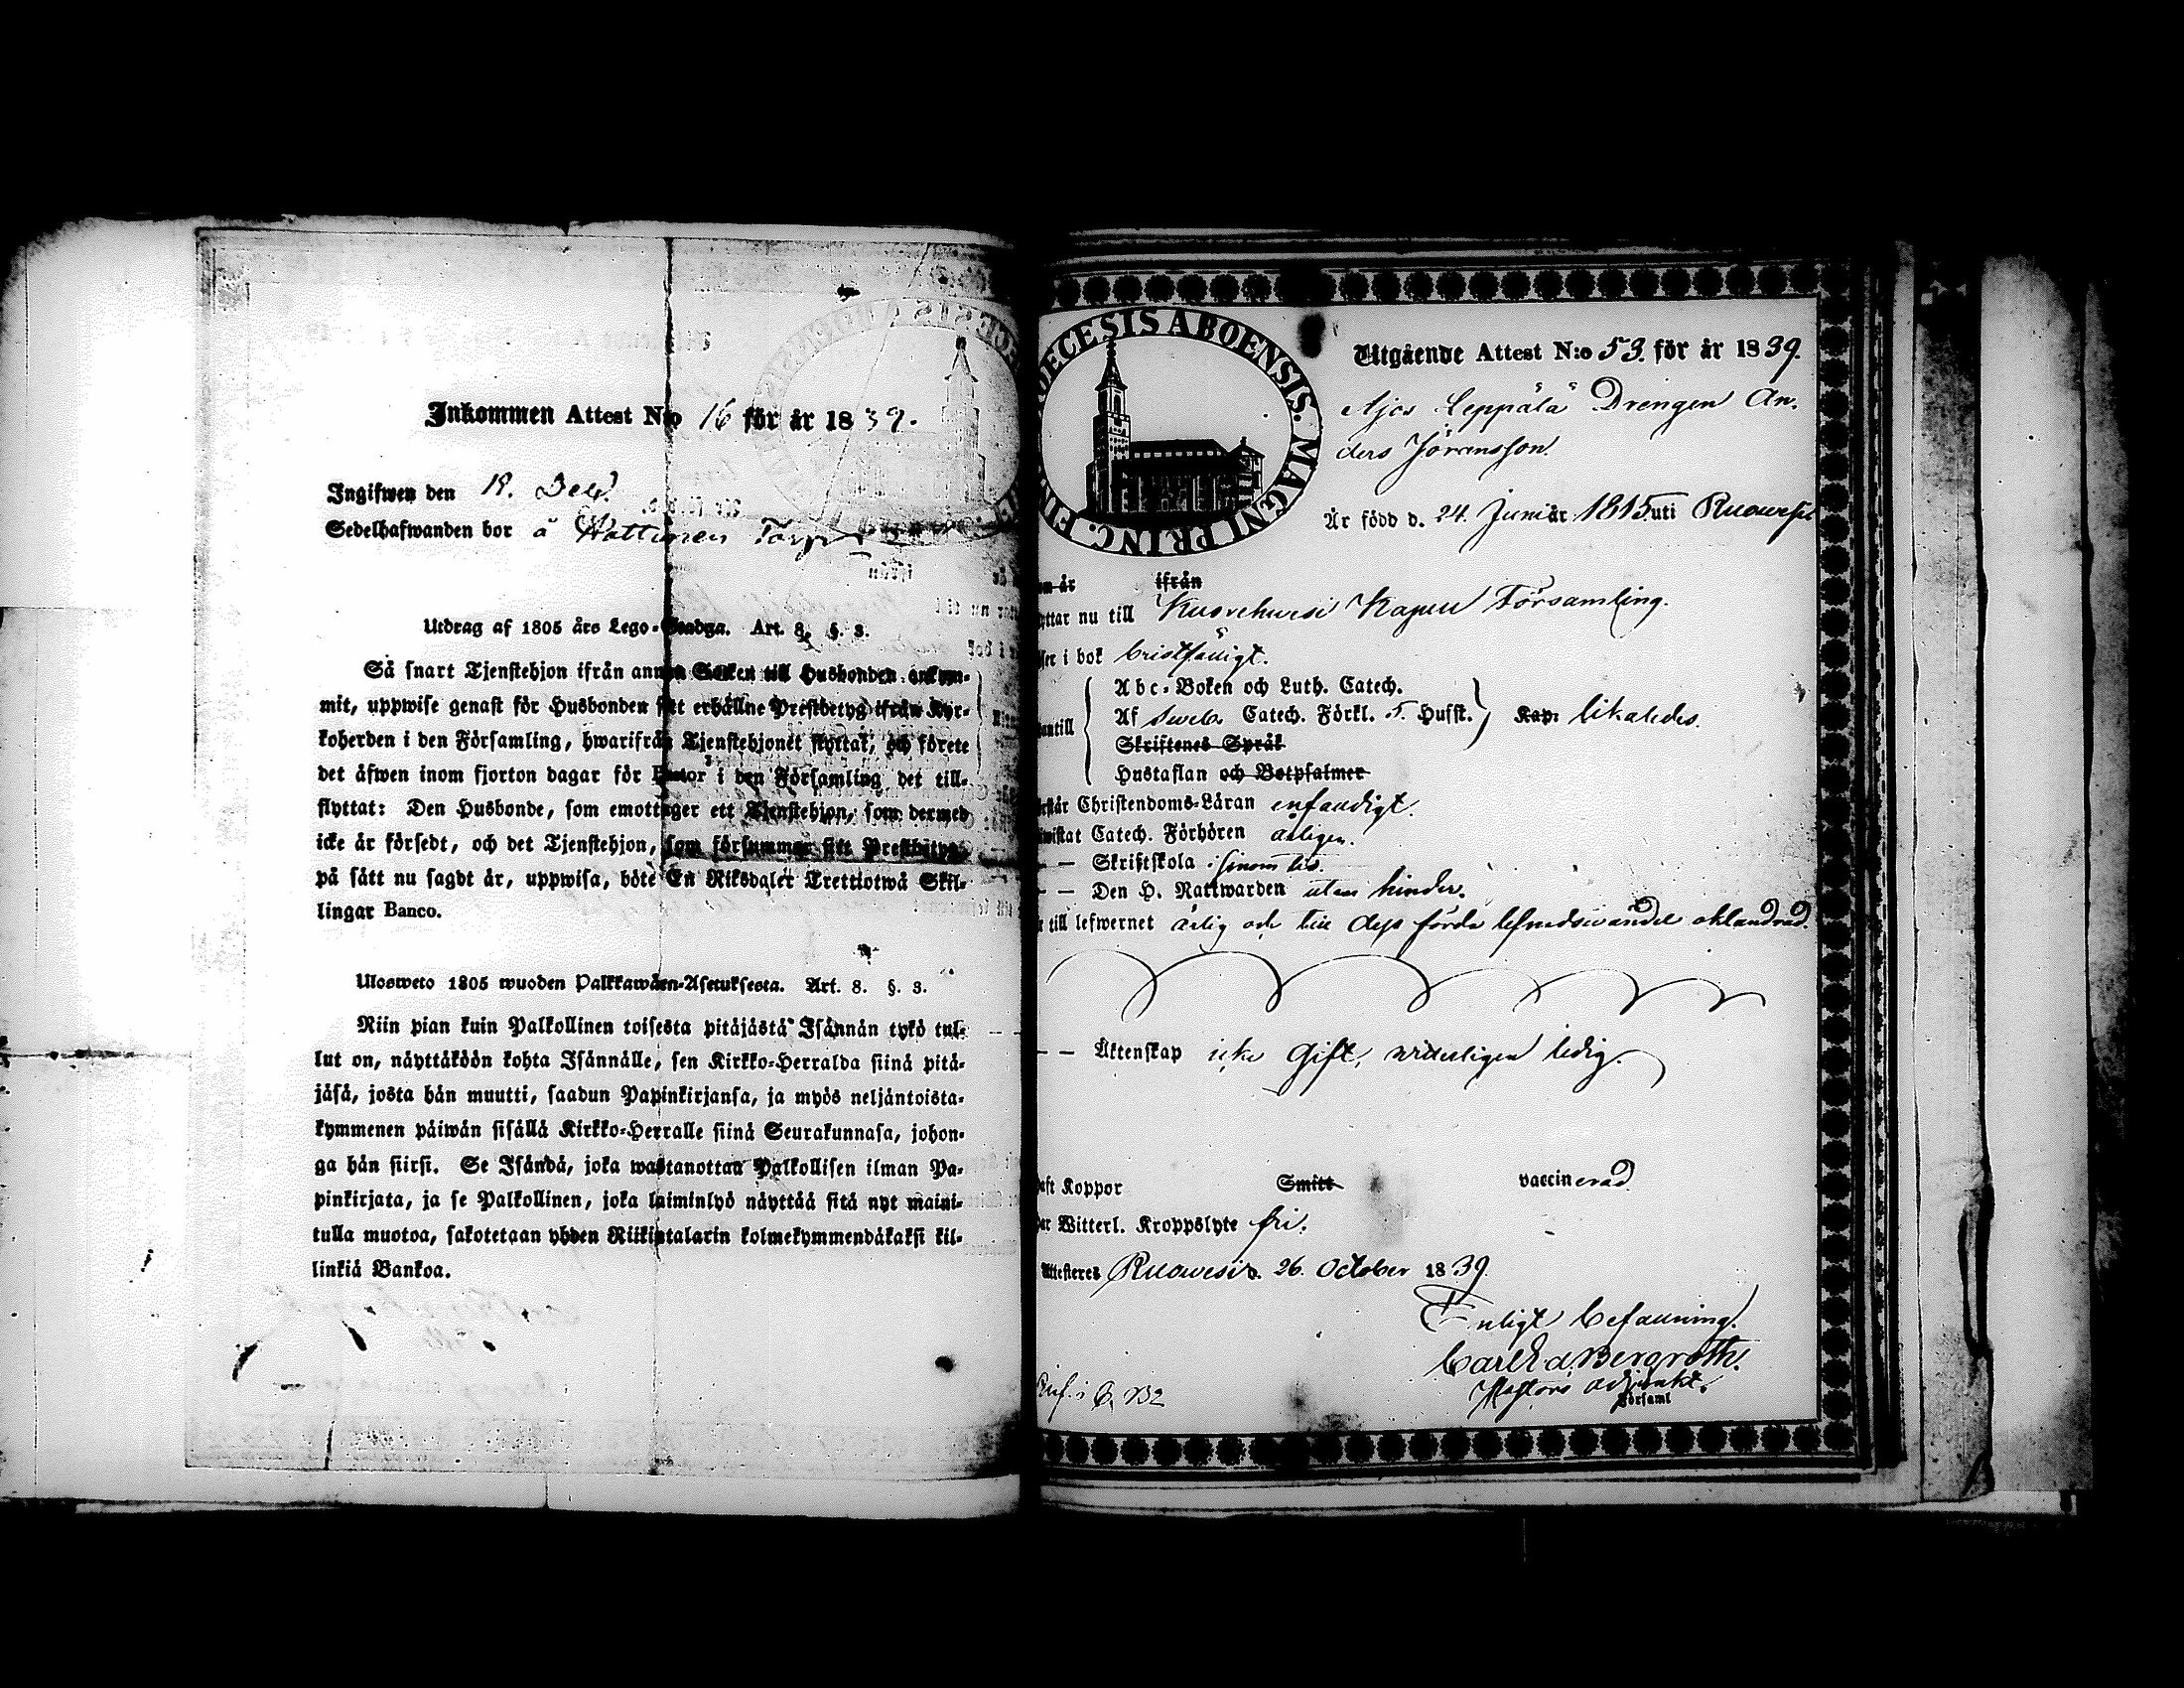 Inkommen Attest N:o 16 för år 1839.
Ingifwen den 18. Dec.
Sedelhafwanden bor å Torp
Utdrag af 1805 års Lego-Stadga. Art. 8. §. 3.
Så snart Tjenstehjon ifrån annan Socken till Husbonden ankom-
mit, uppwise genast för Husbonden sitt erhållne Prestbetyg ifrån Kyr-
koherden i den Församling, hwarifrån Tjenstehjonet flyttat, och förete
det äfwen inom fjorton dagar för Pastor i den Församling det till-
flyttat: Den Husbonde, som emottager ett Tjenstehjon, som dermed
icke är försedt, och det Tjenstehjon, som försummar sitt Prestbetyg,
på sätt nu sagdt är, uppwisa, böte En Riksdaler Trettiotwå Skil-
lingar Banco.
Ulosweto 1805 wuoden Palkkawäen-Asetuksesta. Art. 8. §. 3.
Niin pian kuin Palkollinen toisesta pitäjästä Isännän tykö tul-
lut on, näyttäköön kohta Isännälle, sen Kirkko-Herralda siinä pitä-
jäsä, josta hän muutti, saadun Papinkirjansa, ja myös neljäntoista-
kymmenen päiwän sisällä Kirkko-Herralle siinä Seurakunnasa, johon-
ga hän siirsi. Se Isändä, joka wastanottaa Palkollisen ilman Pa-
pinkirjata, ja se Palkollinen, joka laiminlyö näyttää sitä nyt maini-
tulla muotoa, sakotetaan yhden Riikintalarin kolmekymmendäkaksi kil-
linkiä Bankoa.
DECESIS ABOENSIS. MAGNI PRINC. FIN
Utgående Attest N:o 53. för år 1839.
Ajos Leppälä Drengen An-
ders Göransson.
Är född d. 24. Juni år 1815 uti Ruowesi
är ifrån
yttar nu till Kuorehwesi Kapell Församling.
ser i bok bristfälligt.
Abc-Boken och Luth. Catech.
Af Sweb. Catech. Förkl. 5. Husst. Kap. likaledes.
antill
Skriftenes Språk
Hustaflan och Botpsalmer
står Christendoms-Läran enfaldigt.
wistat Catech. Förhören årligen.
— — Skriftskola
— — Den H. Nattwarden utan hinder.
till lefwernet ärlig och till dess förda lefnadswandel oklandrad.
— — Äktenskap icke gift, witterligen ledig.
haft Koppor Smitt vaccinerad
har Witterl. Kroppslyte fri.
Attesteres Ruowesi d. 26. October 1839.
Enligt befallning.
Carl Ed. Bergroth.
Pastors adjunkt.
Församl